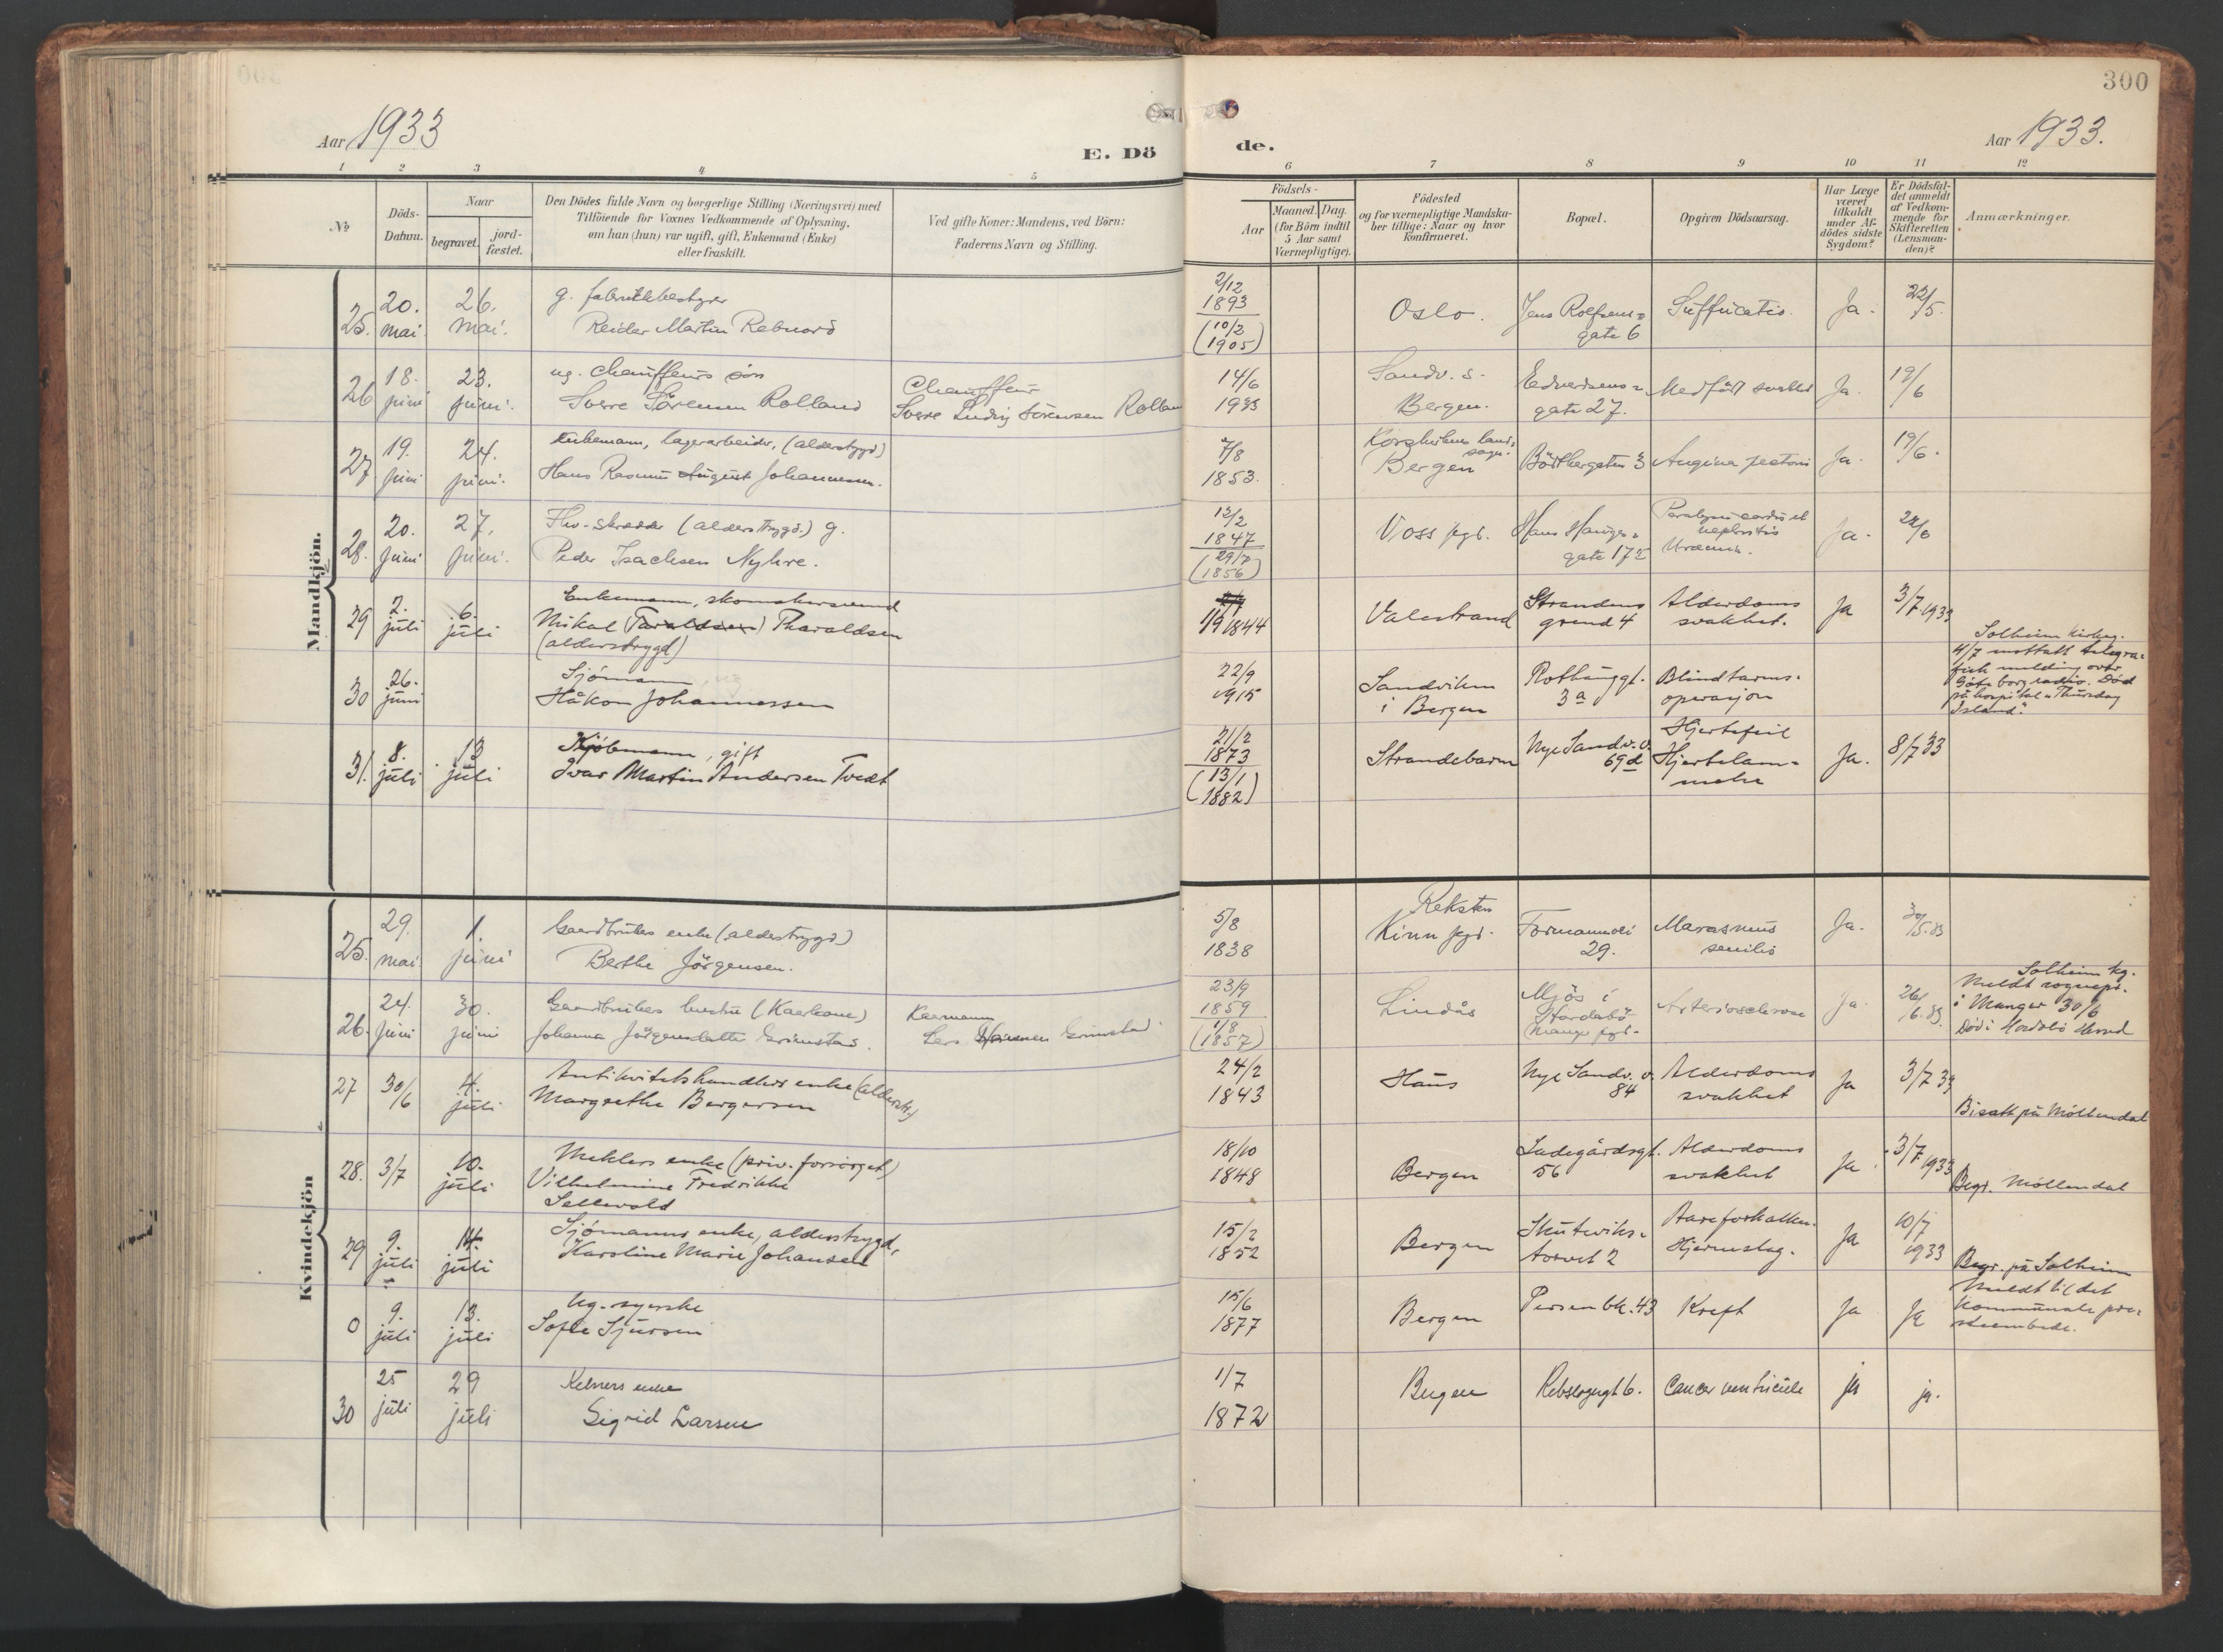 300
Aar 1933
E. Dö
de.
Aar 1933.
1 2 3 4 5
6 7 8 9 10 11 12
No
Döds-
Datum.
Naar
begravet.
jord-
fæstet.
Den Dödes fulde Navn og borgerlige Stilling (Næringsvei) med
Tilföiende for Voxnes Vedkommende af Oplysning,
om han (hun) var ugift, gift, Enkemand (Enke)
eller fraskilt.
Ved gifte Koner: Mandens, ved Börn:
Faderens Navn og Stilling.
Födsels-
Aar
Maaned. Dag.
(for Börn indtil
5 Aar samt
Værnepligtige).
Födested
og for værnepligtige Mandska-
ber tillige: Naar og hvor
konfirmeret.
Bopæl.
Opgiven Dödsaarsag.
Har Læge
været
tilkaldt
under Af-
dödes sidste
Sygdom?
Er Dödsfal-
det anmeldt
af Vedkom-
mende for
Skifteretten
(Lensman-
den)?
Anmærkninger.
Mandkjön.
25. 20. mai 26. mai.
g. fabrikkbestyrer
Reidar Martin
2/12
1893
(10/2
1905)
Oslo.
gate 6
Ja.
22/5.
26 18. juni 23. juni.
ug. chauffeurs sön
Sverre Sörensen Rolland
Chauffeur
Sverre Ludvig Sörensen
14/6
1933
Sandv. s.
Bergen.
gate 27.
Medfödt svakhet
Ja.
19/6
27 19. juni 24. juni.
Enkemann, lagerarbeider, (alderstrygd)
Hans Rasmus August Johannessen.
7/8
1853.
Bergen
Angina pectoris
Ja.
19/6.
28. 20. juni 27. juni.
skredder (alderstrygd.) g.
Peder Isachsen Nyhre.
12/2
1847
(29/7
1856)
Voss pgd.
Hans Hauges-
gate 17
Paralysis cordis et
nephritis
Uræmia.
Ja.
29 2. juli 6. juli
Enkemann, skomakersvend
Mikal Tharaldsen
(alderstrygd)
1/9 1844
Valestrand
Strandens
grend 4
Alderdoms
svakhet.
Ja
3/7 1933
30 26. juni
Sjömann
Håkon Johannessen
22/9
1915
Sandviken
i Bergen
3a
Blindtarms-
operasjon
Solheim kirkeg.
4/7 mottatt telegra-
fisk melding over
Göteborg radio. Död
på hospital "Thursday
Island".
31. 8. juli 13 juli
Kjöbmann, gift
Ivar Martin Andersen Tvedt
21/2
1873
(13/1
1882)
Strandebarm
Nye Sandv.v.
69d
Hjertefeil
Hjertelam-
melse
Ja.
8/7 33
Kvindekjön
25. 29. mai 1. juni
Gaardbrukers enke (alderstrygd)
Berthe Jörgensen.
5/8
1838
Reksten
Kinn pgd.
Formannsvei
29.
Marasmus
senilis
Ja.
30/5.33
26. 24. juni 30. juni
Gaardbrukers hustru (Kaarkone)
Johanna Jörgensdatter Grimstad.
Kaarmann
Lars Grimstad
23/9
1859
(1/8
1857)
Lindås
Mjös i
Manger pgd.
Arteriosclerose
Ja.
26/6.33.
Solheim kg.
Meldt sognepr.
i Manger 30/6
Död i Hordabö Herred
27 30/6 4. juli
Antikvitetshandlers enke (alderst.)
Margrethe Bergersen
24/2
1843
Haus
Nye Sandv. v.
84
Alderdoms
svakhet
Ja
3/7 33
Bisatt på Möllendal
28. 3/7 10. juli
Meklers enke (priv. forsörget)
Vilhelmine Fredrikke
Sellevold
18/10
1848
Bergen
Ladegårdsgt.
56
Alderdoms
svakhet
Ja
3/7 1933
Begr. Möllendal
29 9. juli 14. juli
Sjömanns enke, alderstrygd,
Karoline Marie Johansen
15/2
1852
Bergen
Skuteviks-
torvet 2
Aareforkalkn.
Hjerneslag.
Ja
10/7
1933
Begr. på Solheim
0 9. juli 13. juli
Ug. syerske
Sofie Sjursen
15/6
1877
Bergen
Persenbk. 43
Kreft
Ja
Ja
Meldt til det
kommunale pre-
steembede.
30 25 juli 29 juli
Kelners enke
Sigrid Larsen
1/7
1872
Bergen
Rebslagergt 6.
Cancer ventriculi
ja
ja.